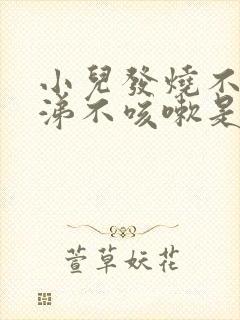 小兒發燒不
涕不咳嗽是
萱草妖花